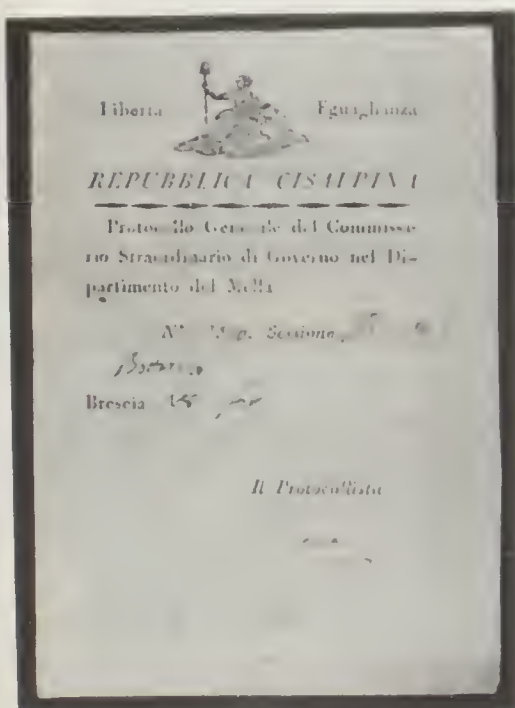 Libertà Eguaglianza
REPUBBLICA CISALPINA
Protocollo Generale del Commissa-
rio Straordinario di Governo nel Di-
partimento del Mella
N.° Sessione
Brescia
Il Protocollista